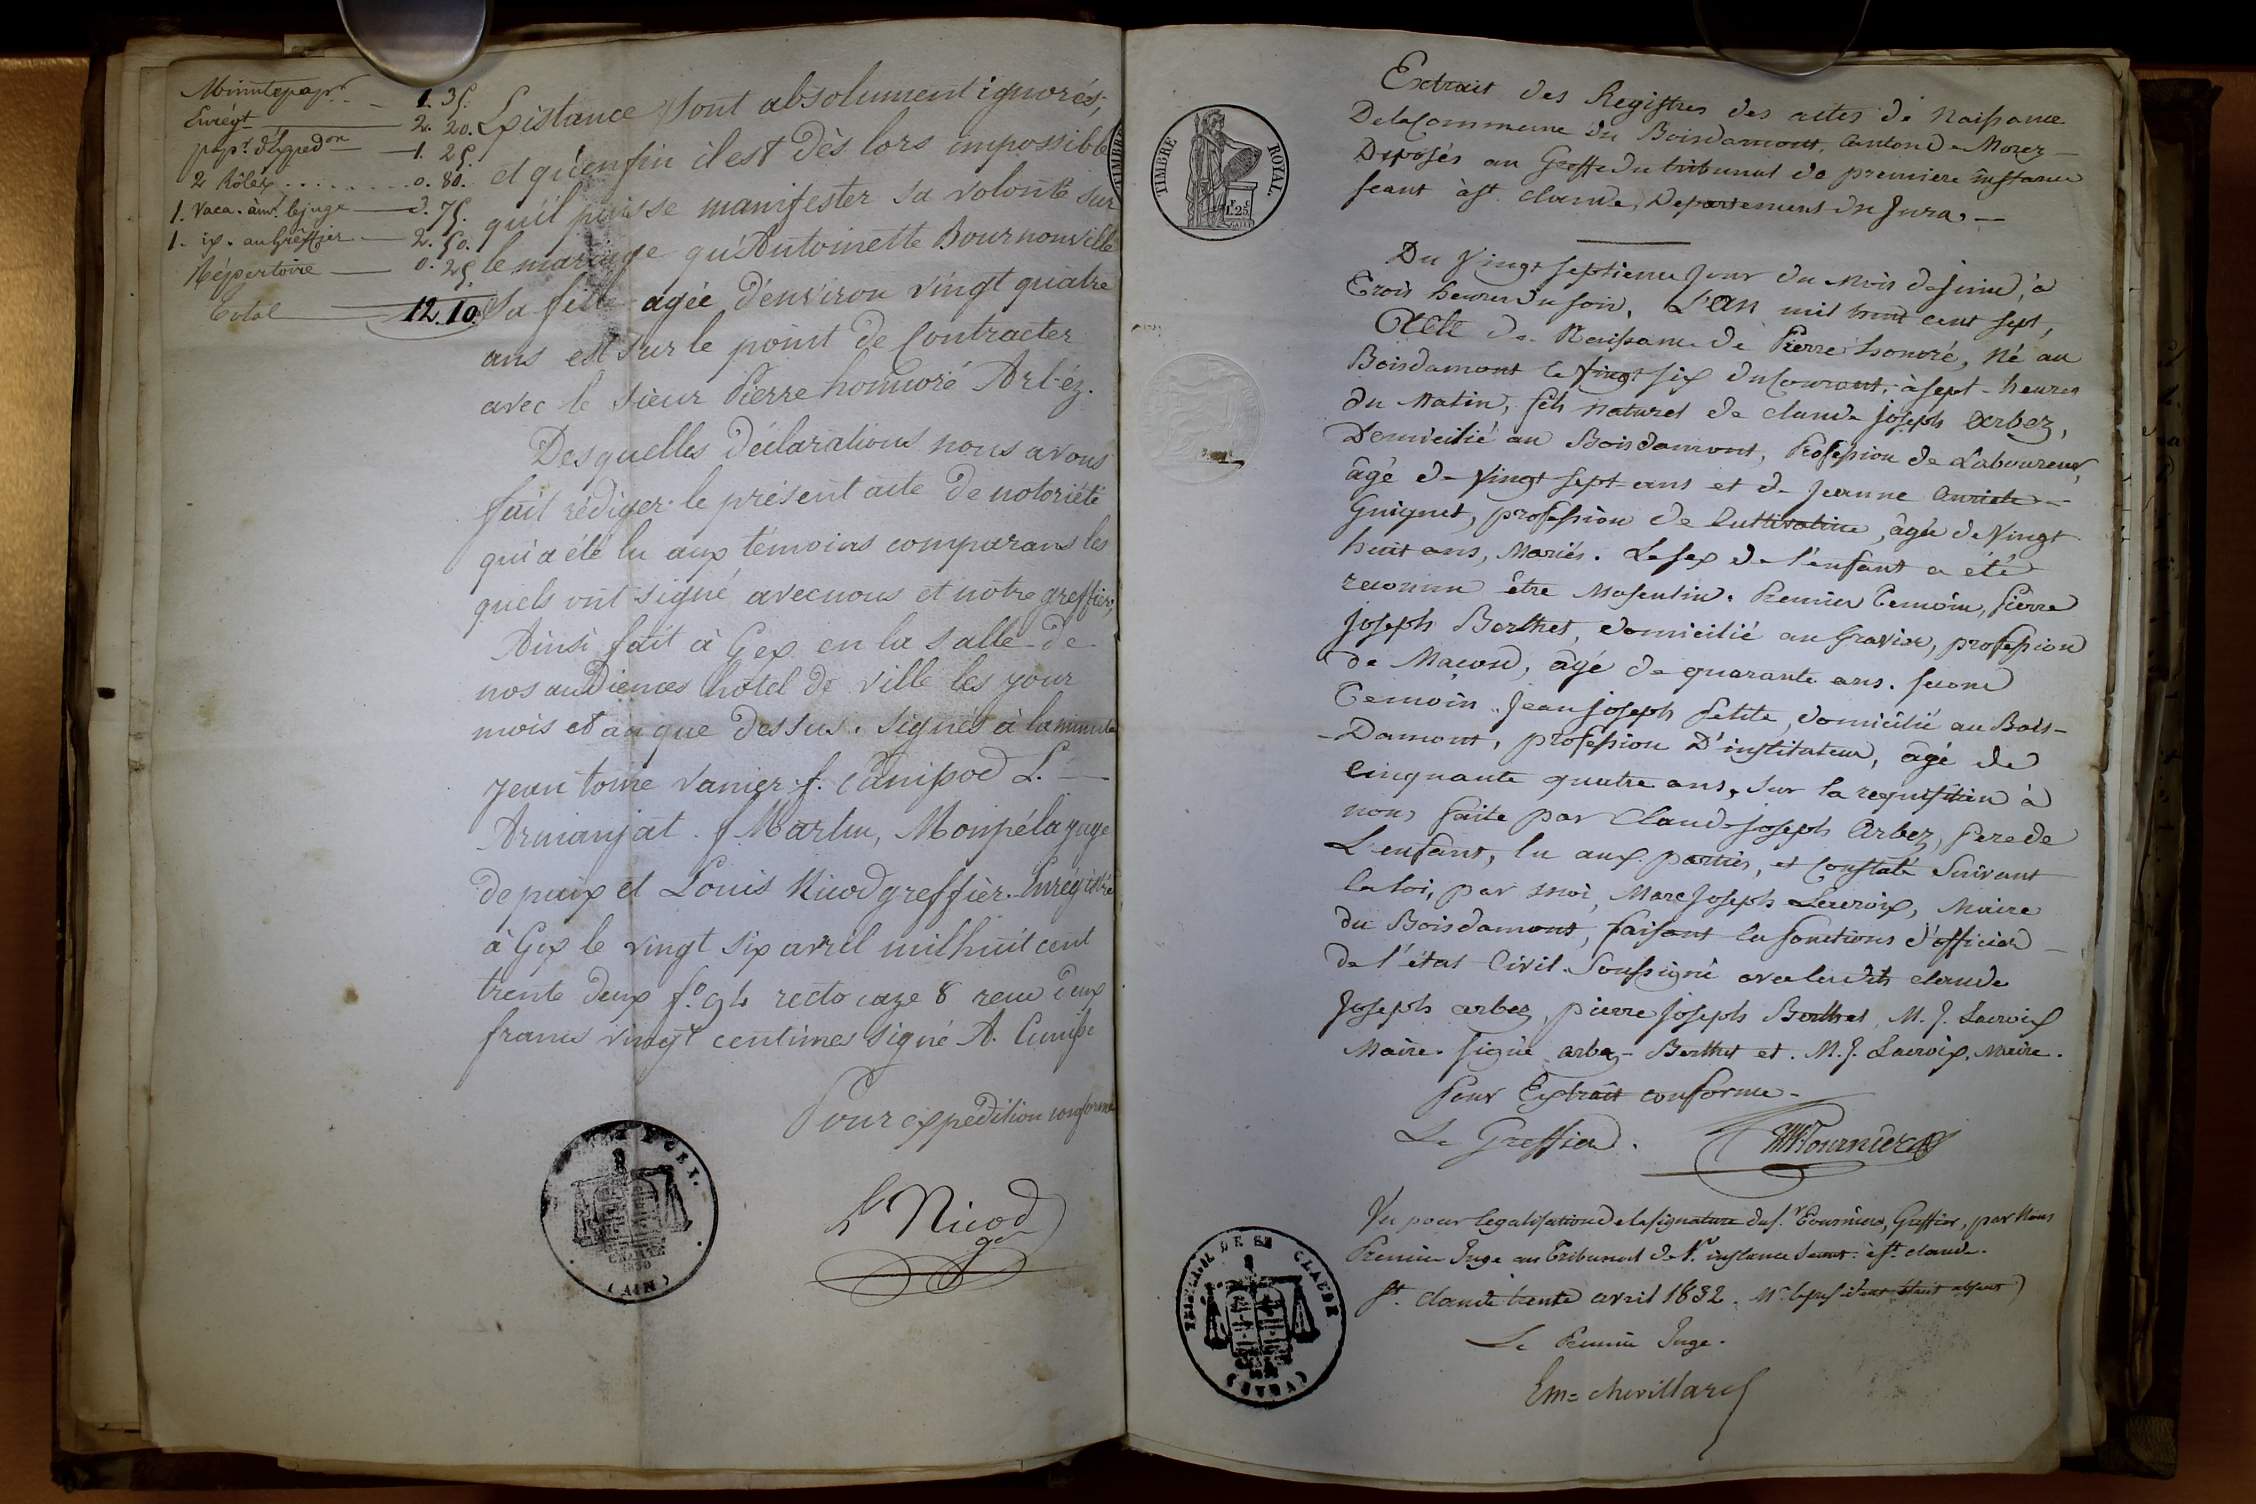 Minute pap.r 1. 35.
Enrégt 2. 20.
pap.r d'expedon 1. 25.
2 Rôles 0. 80.
1. Vaca. à mr. le juge 3. 75.
1. id. au Greffier 2. 50.
Répertoire 0. 25.
Total 12. 10.
Existance sont absolument ignorés,
et qu'enfin il est dès lors impossible
qu'il puisse manifester sa volonté sur
le mariage qu'Antoinette Bournonville
Sa fille agée d'environ vingt quatre
ans est sur le point de Contracter
avec le sieur Pierre honnoré Arbéz.
Desquelles déclarations nous avons
fait rédiger le présent acte de notoriété
qui a été lu aux témoins comparans les
quels ont signé avec nous et notre greffier,
Ainsi fait à Gex en la salle de
nos audiences hôtel de ville les jour
mois et an que dessus. Signés à la minute
Jean toine Vanier f. Panissod L.
Armanjat. f Martin, Monpéla juge
de paix et Louis Nicod greffier. Enrégistré
à Gex le vingt six avril mil huit cent
trente deux f.o 94 recto caze 8 recu deux
francs vingt centimes signé A.
Pour expédition conforme
L Nicod
ger
GEX.
1830
(AIN)
TIMBRE
TIMBRE ROYAL.
1F. 25c
Extrait des Registres des actes de Naissance
De la Commune du Boisdamont, Canton de Morez
Déposés au Greffe du tribunal de premiere instance
seant à st. claude, Departement du Jura.
Du Vingt septieme Jour du Mois de juin, à
Trois heures du soir, L'an mil huit cent sept,
Acte de Naissance de Pierre honoré, Né au
Boisdamont le vingt six du Courant, à sept heures
du Matin, fils naturel de claude joseph Arbez,
Domicilié au Boisdamont, Profession de Laboureur,
âgé de Vingt sept ans et de jeanne
Guignet, profession de Cultivatrice, âgée de Vingt
huit ans, Mariés. Le sex de l'enfant a été
reconnu être Masculin. Premier Temoin, Pierre
Joseph Berthet, domicilié au Gravier, profession
de Maçon, âgé de quarante ans. second
Temoin Jean joseph Petite, domicilié au Bois-
-Damont, profession D'instituteur, âgé de
Cinquante quatre ans, sur la requisition à
nous faite par Claude joseph Arbez, Pere de
L'enfant, lu aux parties, et Constaté Suivant
la loi, par moi, Marc Joseph Lacroix, Maire
du Boisdamont, faisant les fonctions d'officier
de l'état Civil. Soussigné avec lesdits claude
Joseph arbez, pierre joseph Berthet, M. J. Lacroix
Maire. Signé arbez - Berthet et M. J. Lacroix, Maire.
Pour Extrait conforme
Le Greffier.
Vu pour legalisation de la signature du s.r Tournier, Greffier, par Nous
Premier Juge au Tribunal de 1re instance seant à st. claude.
St. claude trente avril 1832. Mr. le president étant absent
Le Premier Juge.
Em= chevillard
TRIBUNAL DE ST CLAUDE
(JURA)